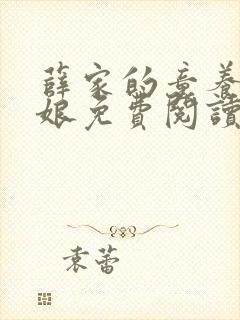 薛家的童养
娘免費閱讀
袁蕾